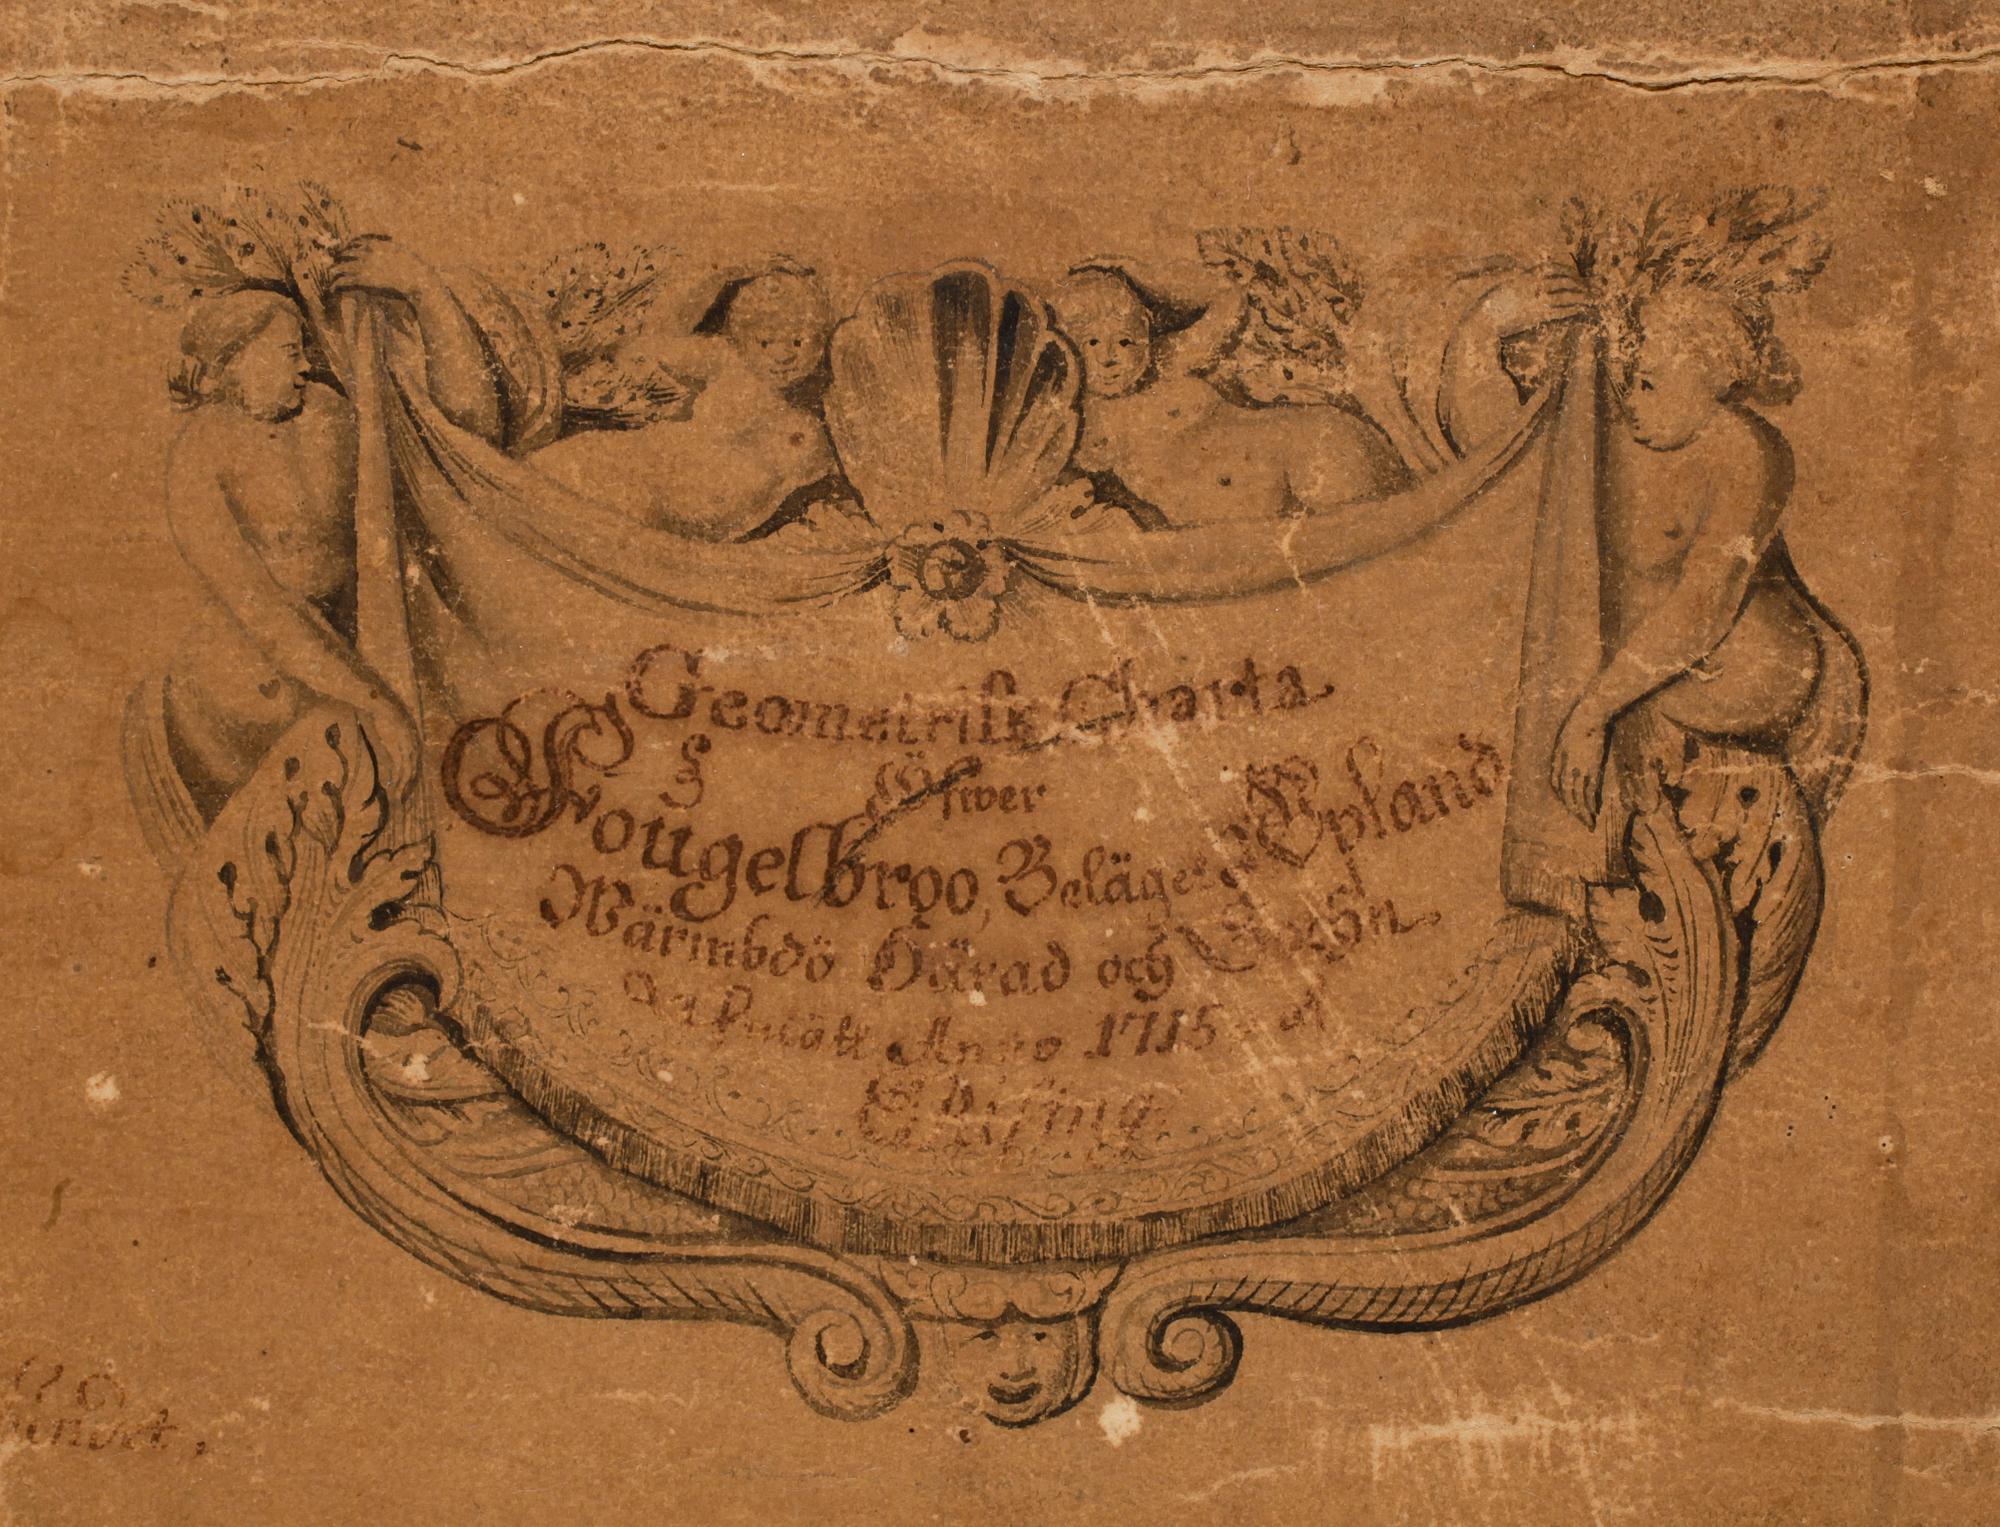 Geometrisk Charta
Öfwer
Fougelbroo, Beläget i Upland
Wärmbdö Härad och Sochn
Anno 1715 af